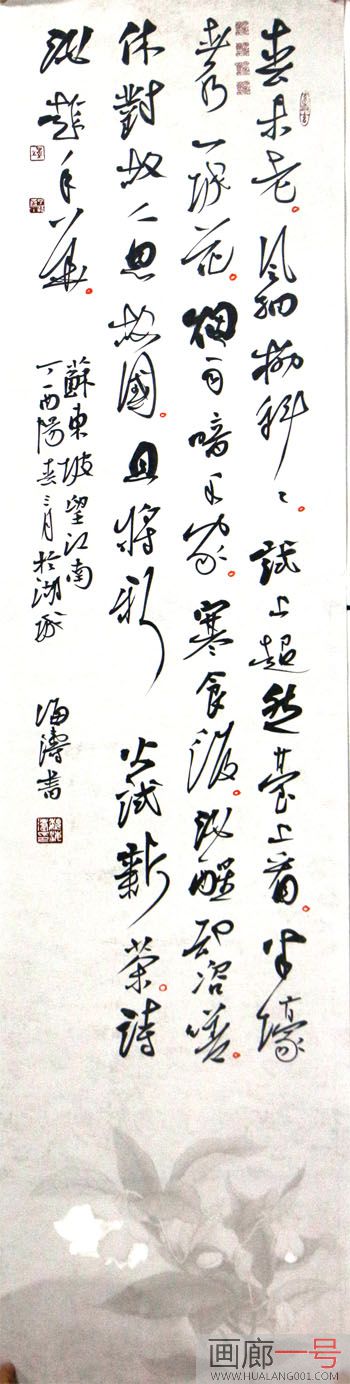 春未老。风細柳斜々。試上超然臺上看。半壕
春水一城花。烟雨暗千家。寒食後。酒醒却咨嗟。
休對故人思故國。且將新火試新茶。詩
酒趁年華。
蘇東坡望江南
丁酉陽春三月於湖城
海濤書
画廊一号
WWW.HUALANG001.COM